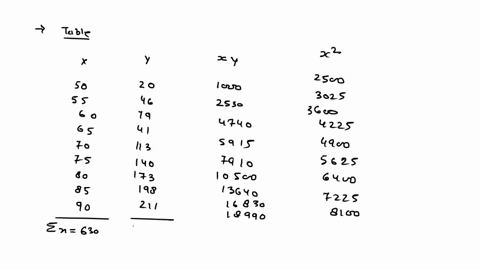 → Table
x y xy x²
50 20 1000 2500
55 46 2530 3025
60 79 4740 3600
65 41 5915 4225
70 113 7910 4900
75 140 10500 5625
80 173 13640 6400
85 198 16830 7225
90 211 18990 8100
Σx = 630